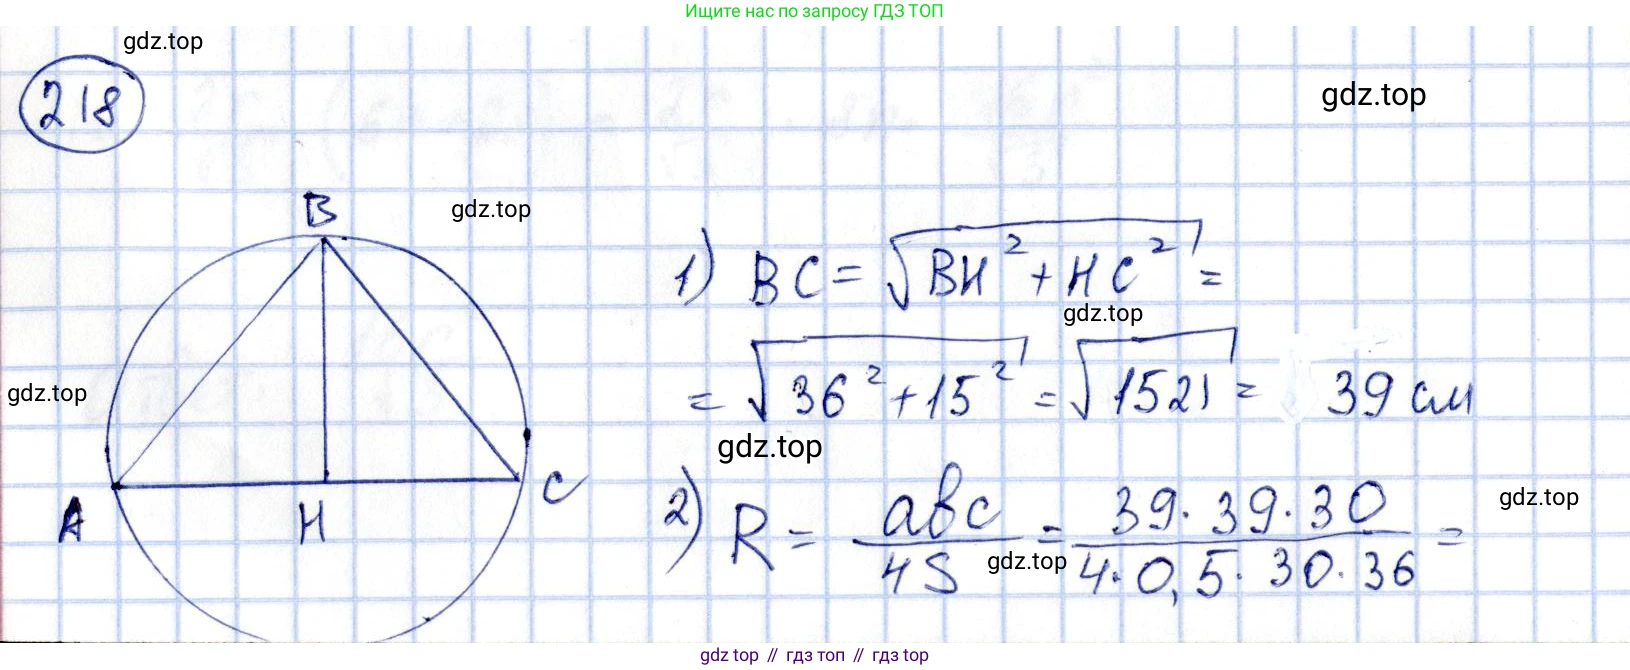 Ищите нас по запросу ГДЗ ТОП
gdz.top
218
gdz.top
B
gdz.top
1) BC = √(BH² + HC²) =
gdz.top
= √(36² + 15²) = √1521 = 39 см
gdz.top
gdz.top
A
H
C
2) R = abc/4S = 39·39·30/4·0,5·30·36 =
gdz.top
gdz.top
gdz top // гдз топ // гдз top